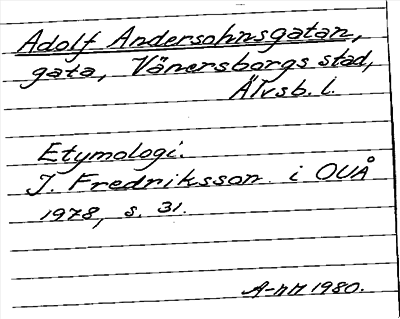 Adolf Andersohnsgatan,
gata, Vänersborgs stad,
Älvsb. l.
Etymologi:
J. Fredriksson i OUÅ
1978, s. 31.
A-nM 1980.